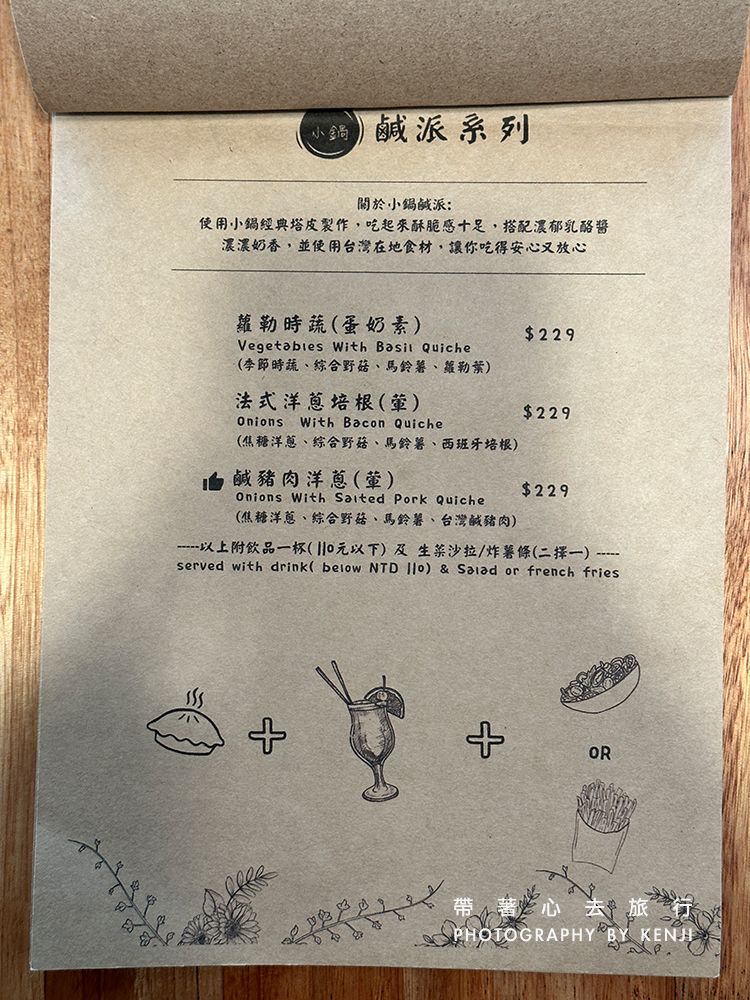 小鍋 鹹派系列
關於小鍋鹹派:
使用小鍋經典塔皮製作，吃起來酥脆感十足，搭配濃郁乳酪醬
濃濃奶香，並使用台灣在地食材，讓你吃得安心又放心
蘿勒時蔬(蛋奶素) $229
Vegetables With Basil Quiche
(季節時蔬、綜合野菇、馬鈴薯、蘿勒葉)
法式洋蔥培根(葷) $229
Onions With Bacon Quiche
(焦糖洋蔥、綜合野菇、馬鈴薯、西班牙培根)
鹹豬肉洋蔥(葷) $229
Onions With Salted Pork Quiche
(焦糖洋蔥、綜合野菇、馬鈴薯、台灣鹹豬肉)
-----以上附飲品一杯(110元以下) 及 生菜沙拉/炸薯條(二擇一) -----
served with drink( below NTD 110) & Salad or french fries
OR
帶著心去旅行
PHOTOGRAPHY BY KENJI